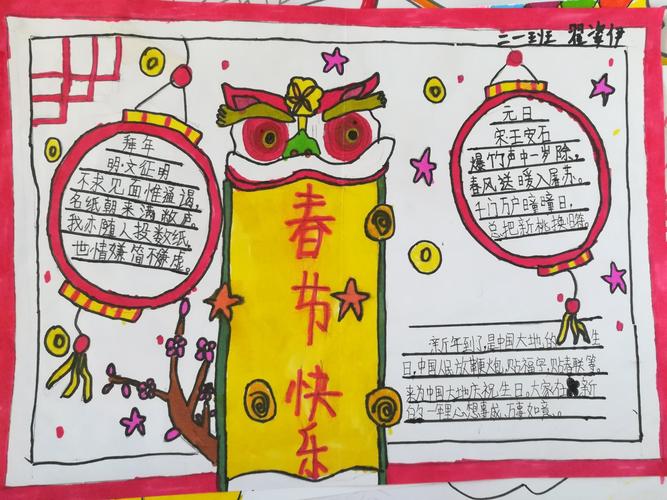 二一班 翟姿伊
拜年
明·文征明
不求见面惟通谒，
名纸朝来满敝庐。
我亦随人投数纸，
世情嫌简不嫌虚。
春节快乐
元日
宋王安石
爆竹声中一岁除，
春风送暖入屠苏。
千门万户曈曈日，
总把新桃换旧符。
新年到了，是中国大地的 生
日，中国人民放鞭炮，贴福字，贴春联等，
来为中国大地庆祝生日。大家在 新
的一年里心想事成，万事如意。